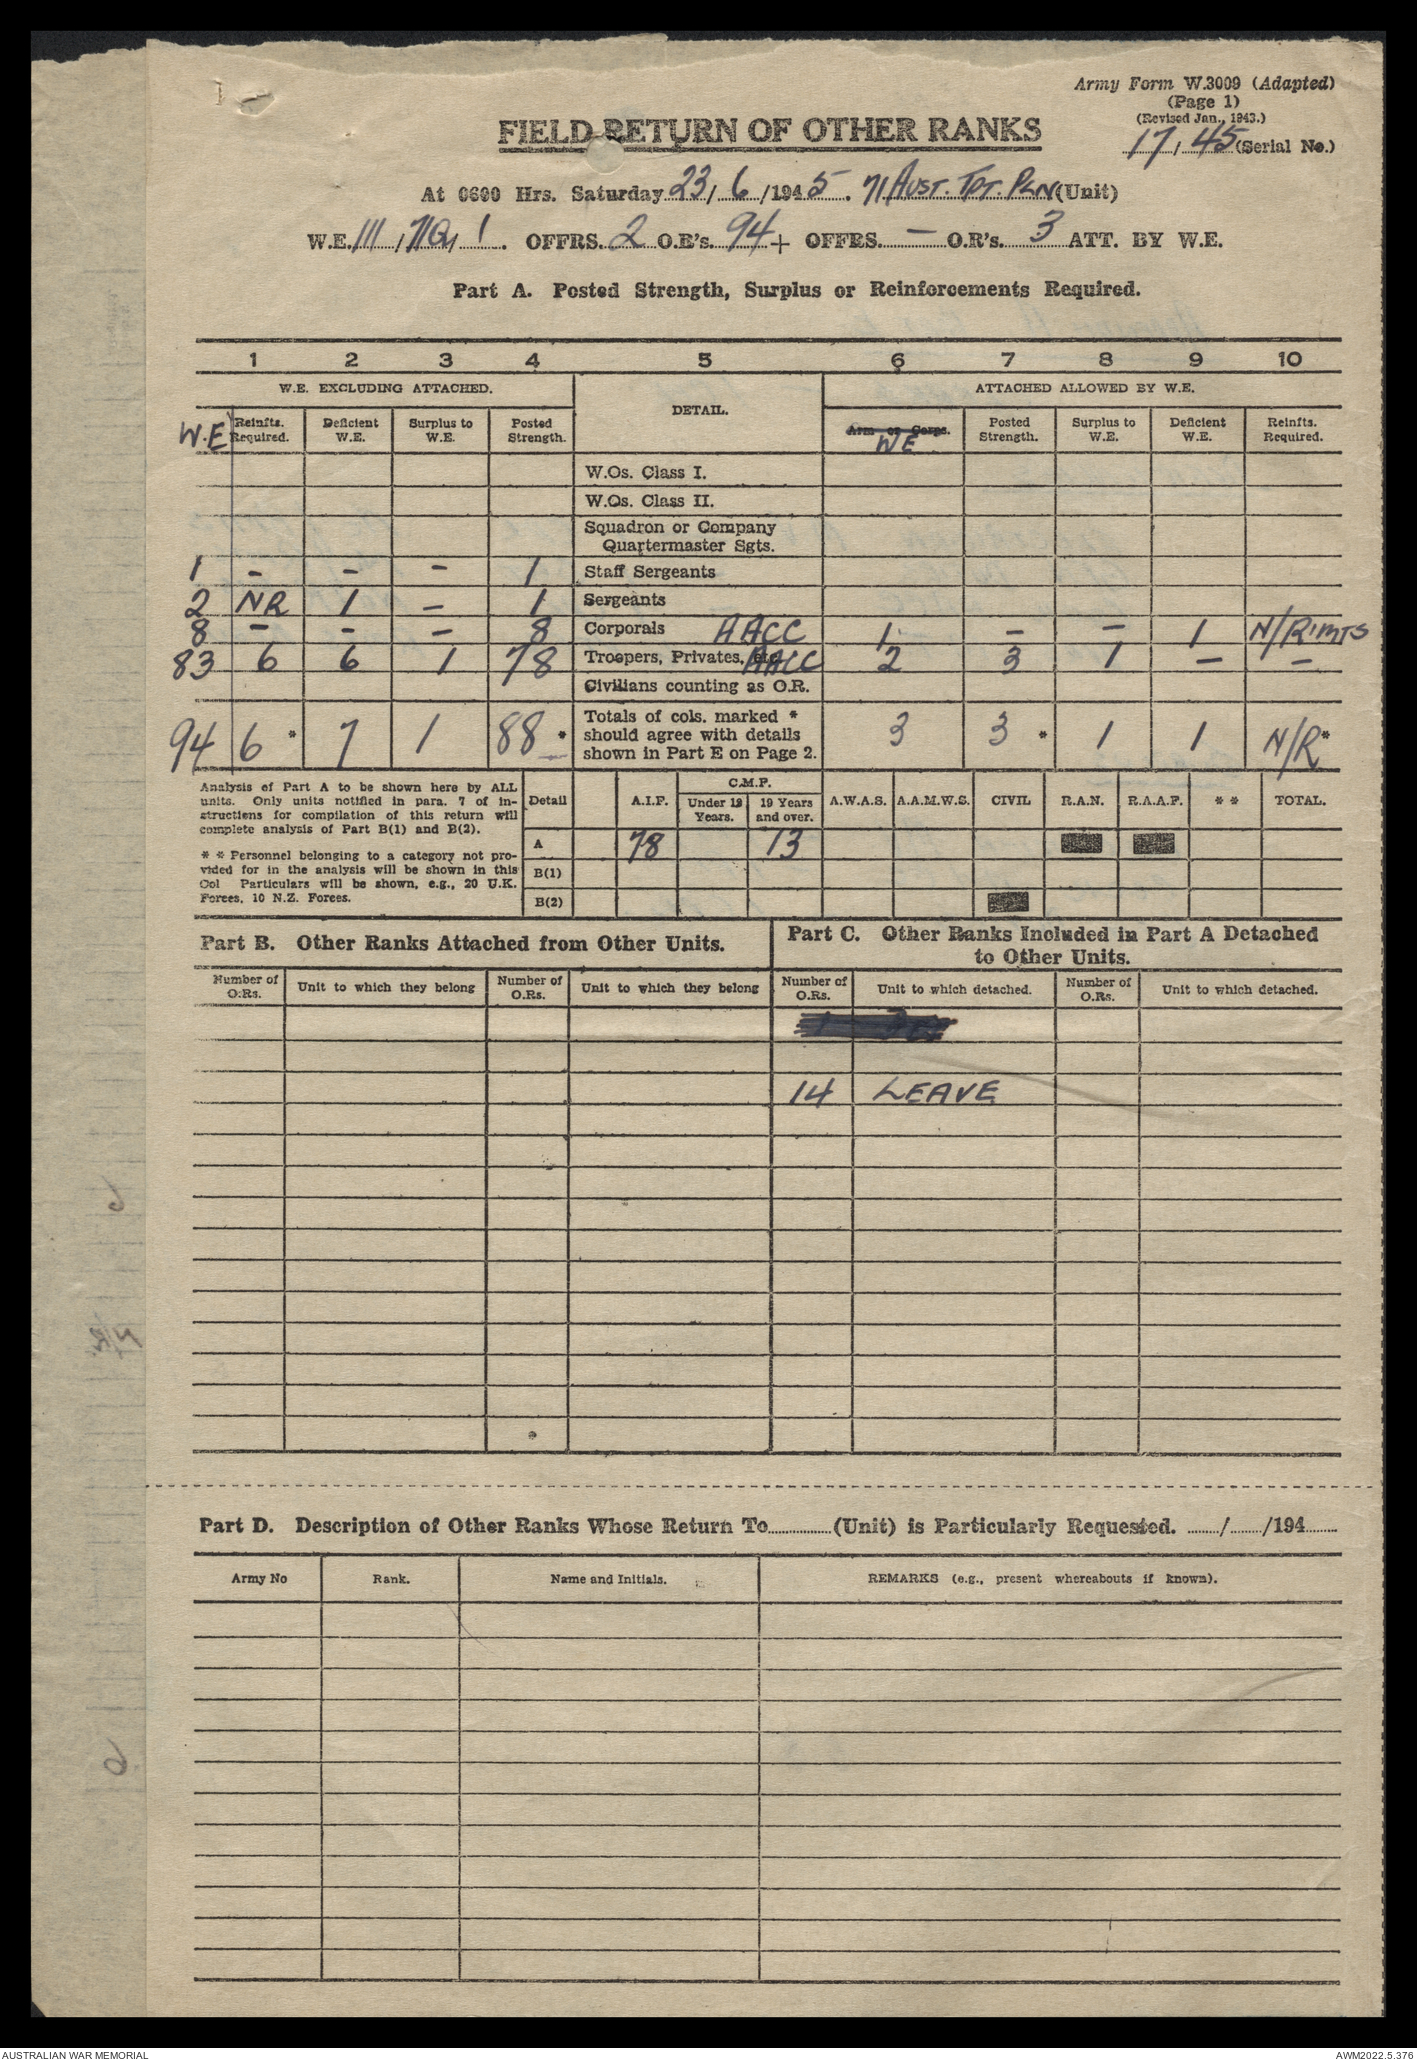 Army Form W.3009 (Adapted)
(Page 1)
(Revised Jan., 1943.)
17/45 (Serial No.)
FIELD RETURN OF OTHER RANKS
At 0600 Hrs. Saturday 23/6/1945. 71 AUST. TPT. PLN (Unit)
W.E. III / / 1. OFFRS. 2 O.R's. 94 + OFFRS. — O.R's. 3 ATT. BY W.E.
Part A. Posted Strength, Surplus or Reinforcements Required.
1 2 3 4 5 6 7 8 9 10
W.E. EXCLUDING ATTACHED. DETAIL. ATTACHED ALLOWED BY W.E.
W.E Reinfts. Required. Deficient W.E. Surplus to W.E. Posted Strength. Arm or Corps. WE Posted Strength. Surplus to W.E. Deficient W.E. Reinfts. Required.
W.Os. Class I.
W.Os. Class II.
Squadron or Company
Quartermaster Sgts.
1 – – – 1 Staff Sergeants
2 NR 1 – 1 Sergeants
8 – – – 8 Corporals AACC 1 – – 1 N/R'MTS
83 6 6 1 78 Troopers, Privates, etc. AACC 2 3 1 – –
Civilians counting as O.R.
94 6 * 7 1 88 * Totals of cols. marked * should agree with details shown in Part E on Page 2. 3 3 * 1 1 N/R*
Analysis of Part A to be shown here by ALL
units. Only units notified in para. 7 of in-
structions for compilation of this return will
complete analysis of Part B(1) and B(2).
* * Personnel belonging to a category not pro-
vided for in the analysis will be shown in this
Col Particulars will be shown, e.g., 20 U.K.
Forces, 10 N.Z. Forces.
Detail A.I.F. C.M.F. Under 19 Years. 19 Years and over. A.W.A.S. A.A.M.W.S. CIVIL R.A.N. R.A.A.F. * * TOTAL.
A 78 13
B(1)
B(2)
Part B. Other Ranks Attached from Other Units.
Part C. Other Ranks Included in Part A Detached
to Other Units.
Number of O.Rs. Unit to which they belong Number of O.Rs. Unit to which they belong Number of O.Rs. Unit to which detached. Number of O.Rs. Unit to which detached.
14 LEAVE
Part D. Description of Other Ranks Whose Return To............(Unit) is Particularly Requested. ....../....../194......
Army No Rank. Name and Initials. REMARKS (e.g., present whereabouts if known).
AUSTRALIAN WAR MEMORIAL AWM2022.5.376